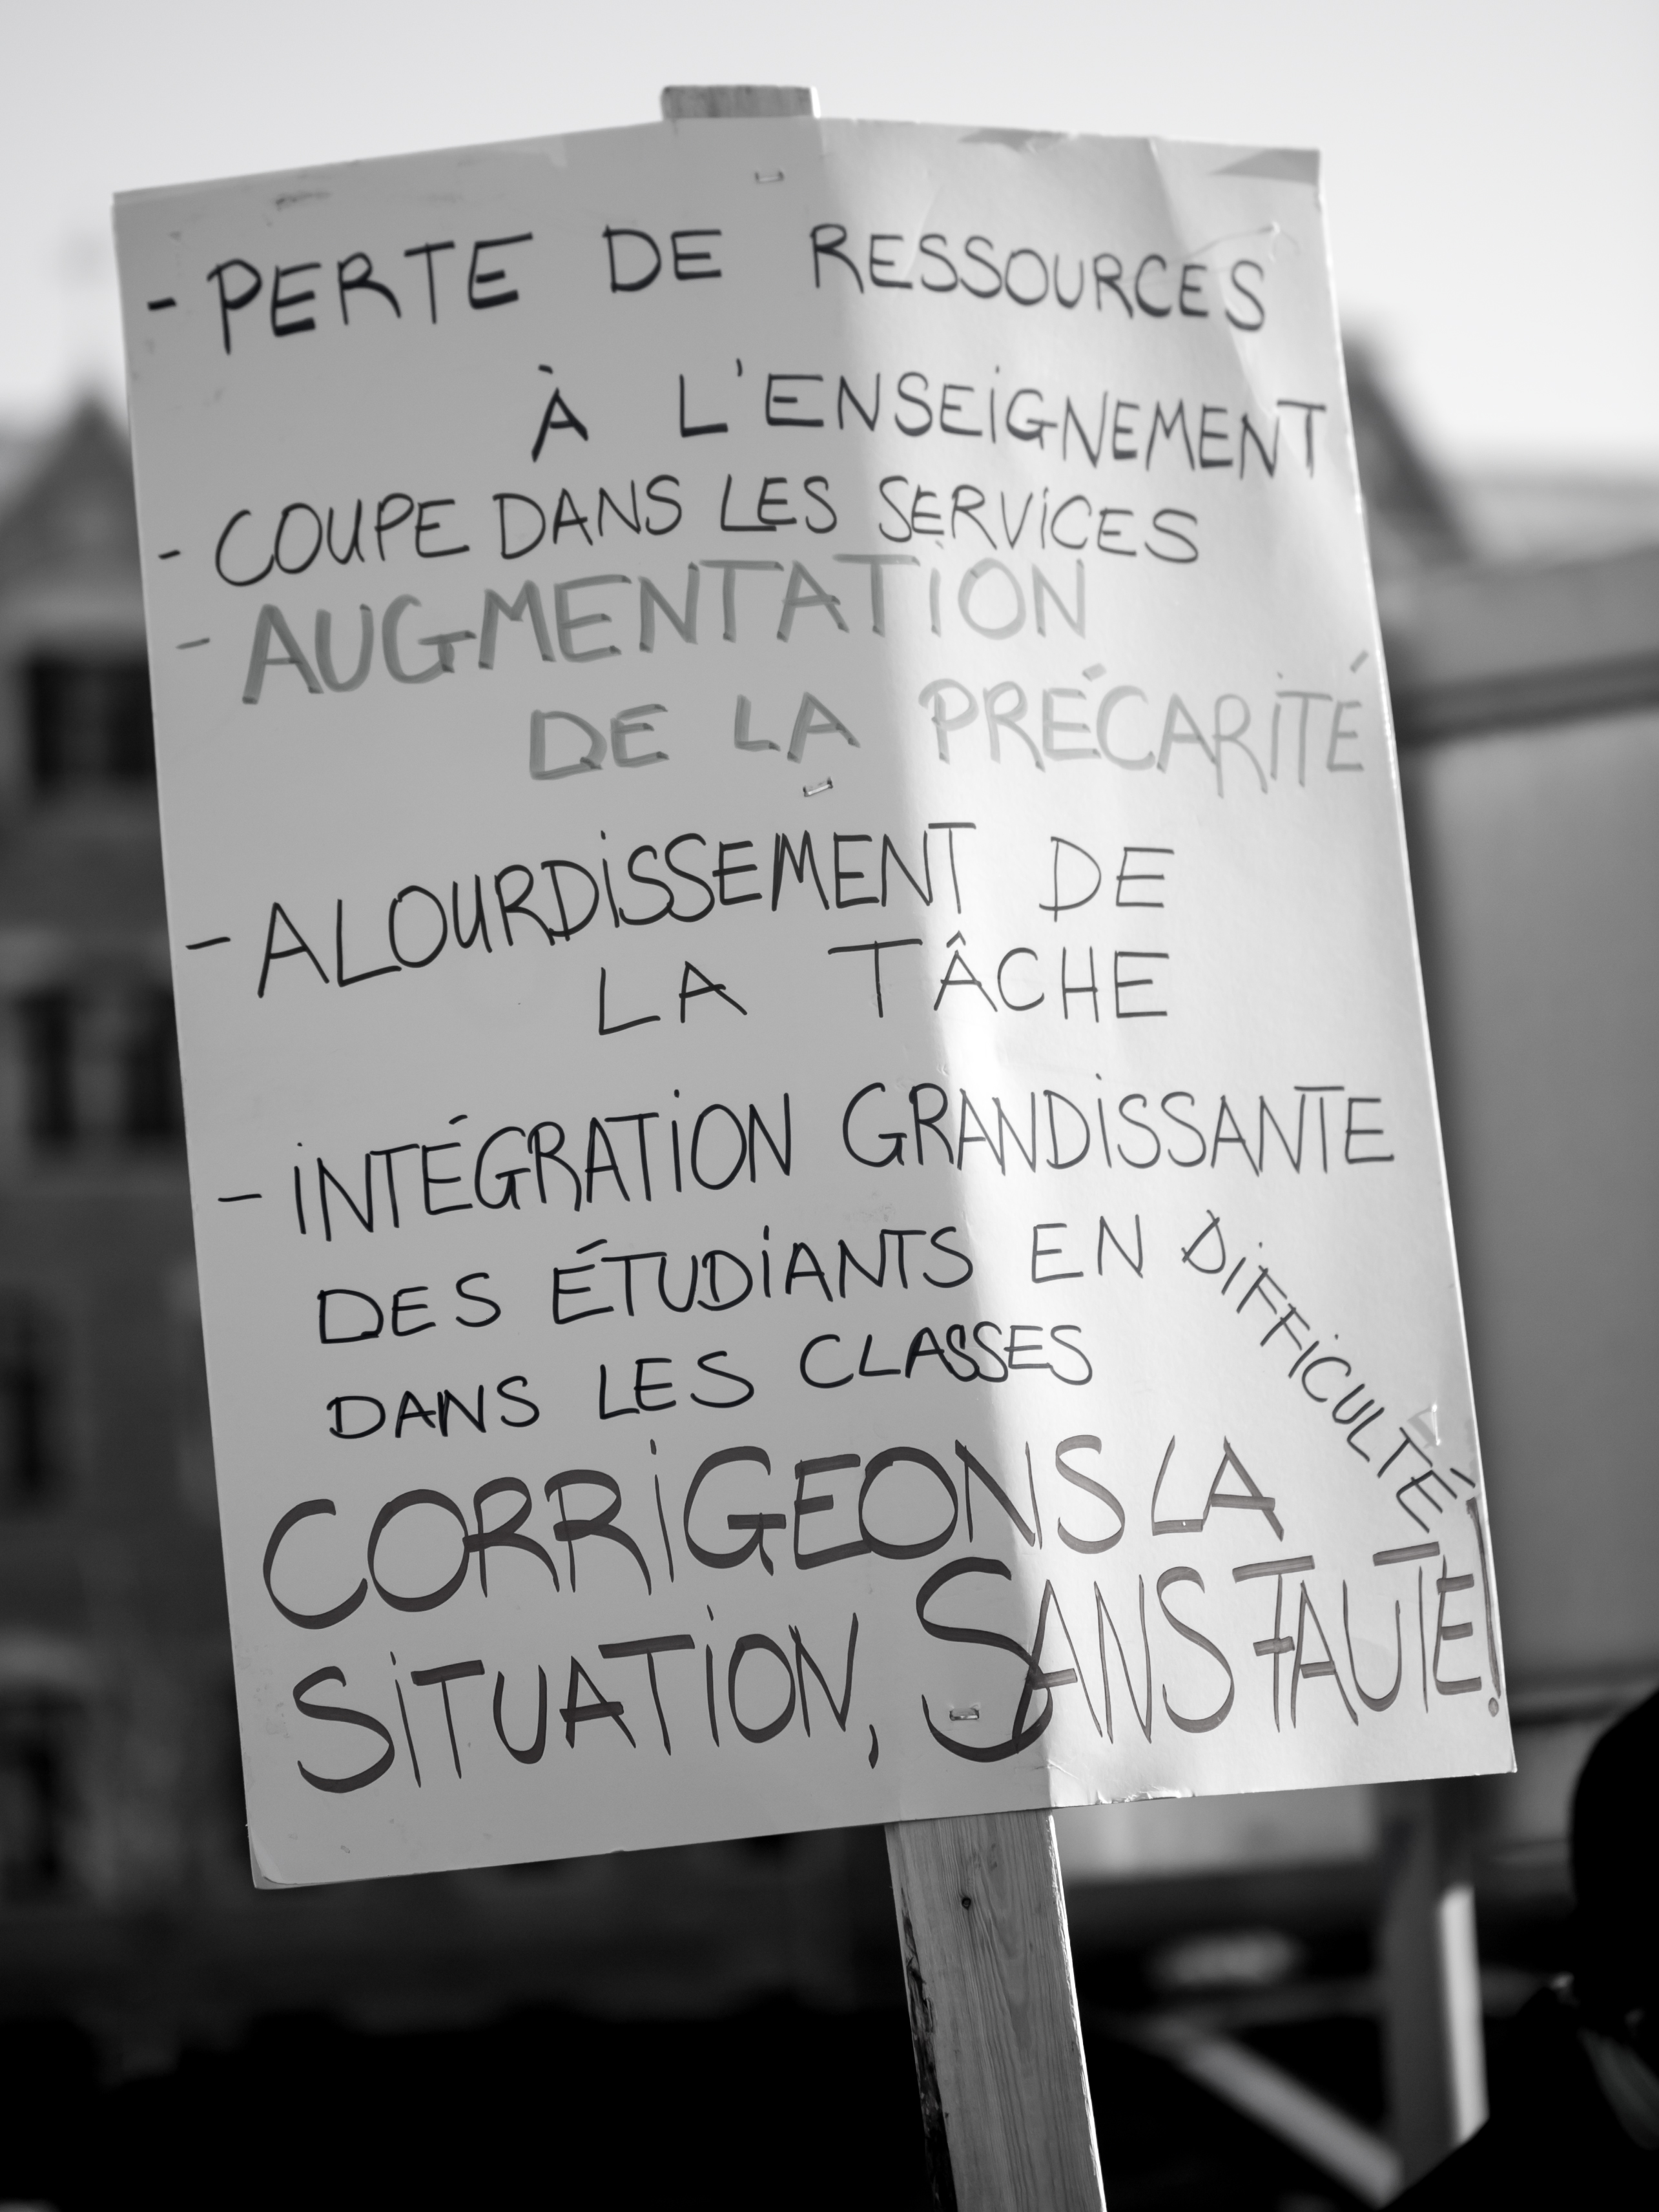 - PERTE DE RESSOURCES
À L'ENSEIGNEMENT
- COUPE DANS LES SERVICES
- AUGMENTATION
DE LA PRÉCARITÉ
- ALOURDISSEMENT DE
LA TÂCHE
- INTÉGRATION GRANDISSANTE
DES ÉTUDIANTS EN DIFFICULTÉ
DANS LES CLASSES
CORRIGEONS LA
SITUATION, SANS FAUTE!